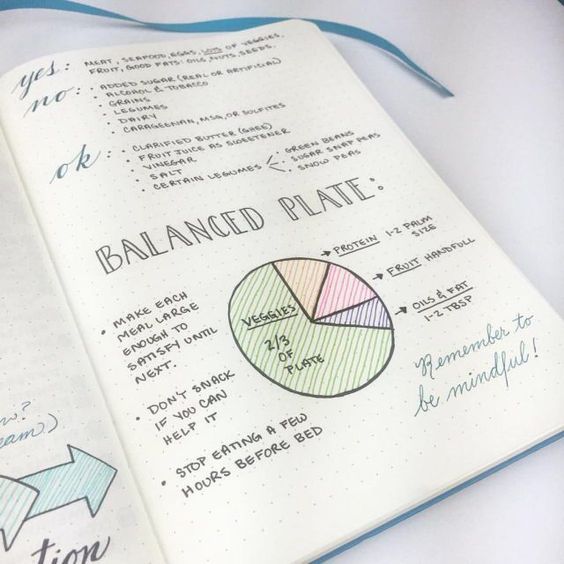 yes: MEAT, SEAFOOD, EGGS, LOTS OF VEGGIES,
FRUIT, GOOD FATS: OILS, NUTS, SEEDS.
no: • ADDED SUGAR (REAL OR ARTIFICIAL)
• ALCOHOL & TOBACCO
• GRAINS
• LEGUMES
• DAIRY
• CARAGEENAN, MSG, OR SULFITES
ok: • CLARIFIED BUTTER (GHEE)
• FRUIT JUICE AS SWEETENER
• VINEGAR
• SALT
• CERTAIN LEGUMES
• GREEN BEANS
• SUGAR SNAP PEAS
• SNOW PEAS
BALANCED PLATE:
PROTEIN 1-2 PALM
SIZE
FRUIT HANDFULL
OILS & FAT
1-2 TBSP
VEGGIES
2/3
OF
PLATE
• MAKE EACH
MEAL LARGE
ENOUGH TO
SATISFY UNTIL
NEXT.
• DON'T SNACK
IF YOU CAN
HELP IT
• STOP EATING A FEW
HOURS BEFORE BED
Remember to
be mindful!